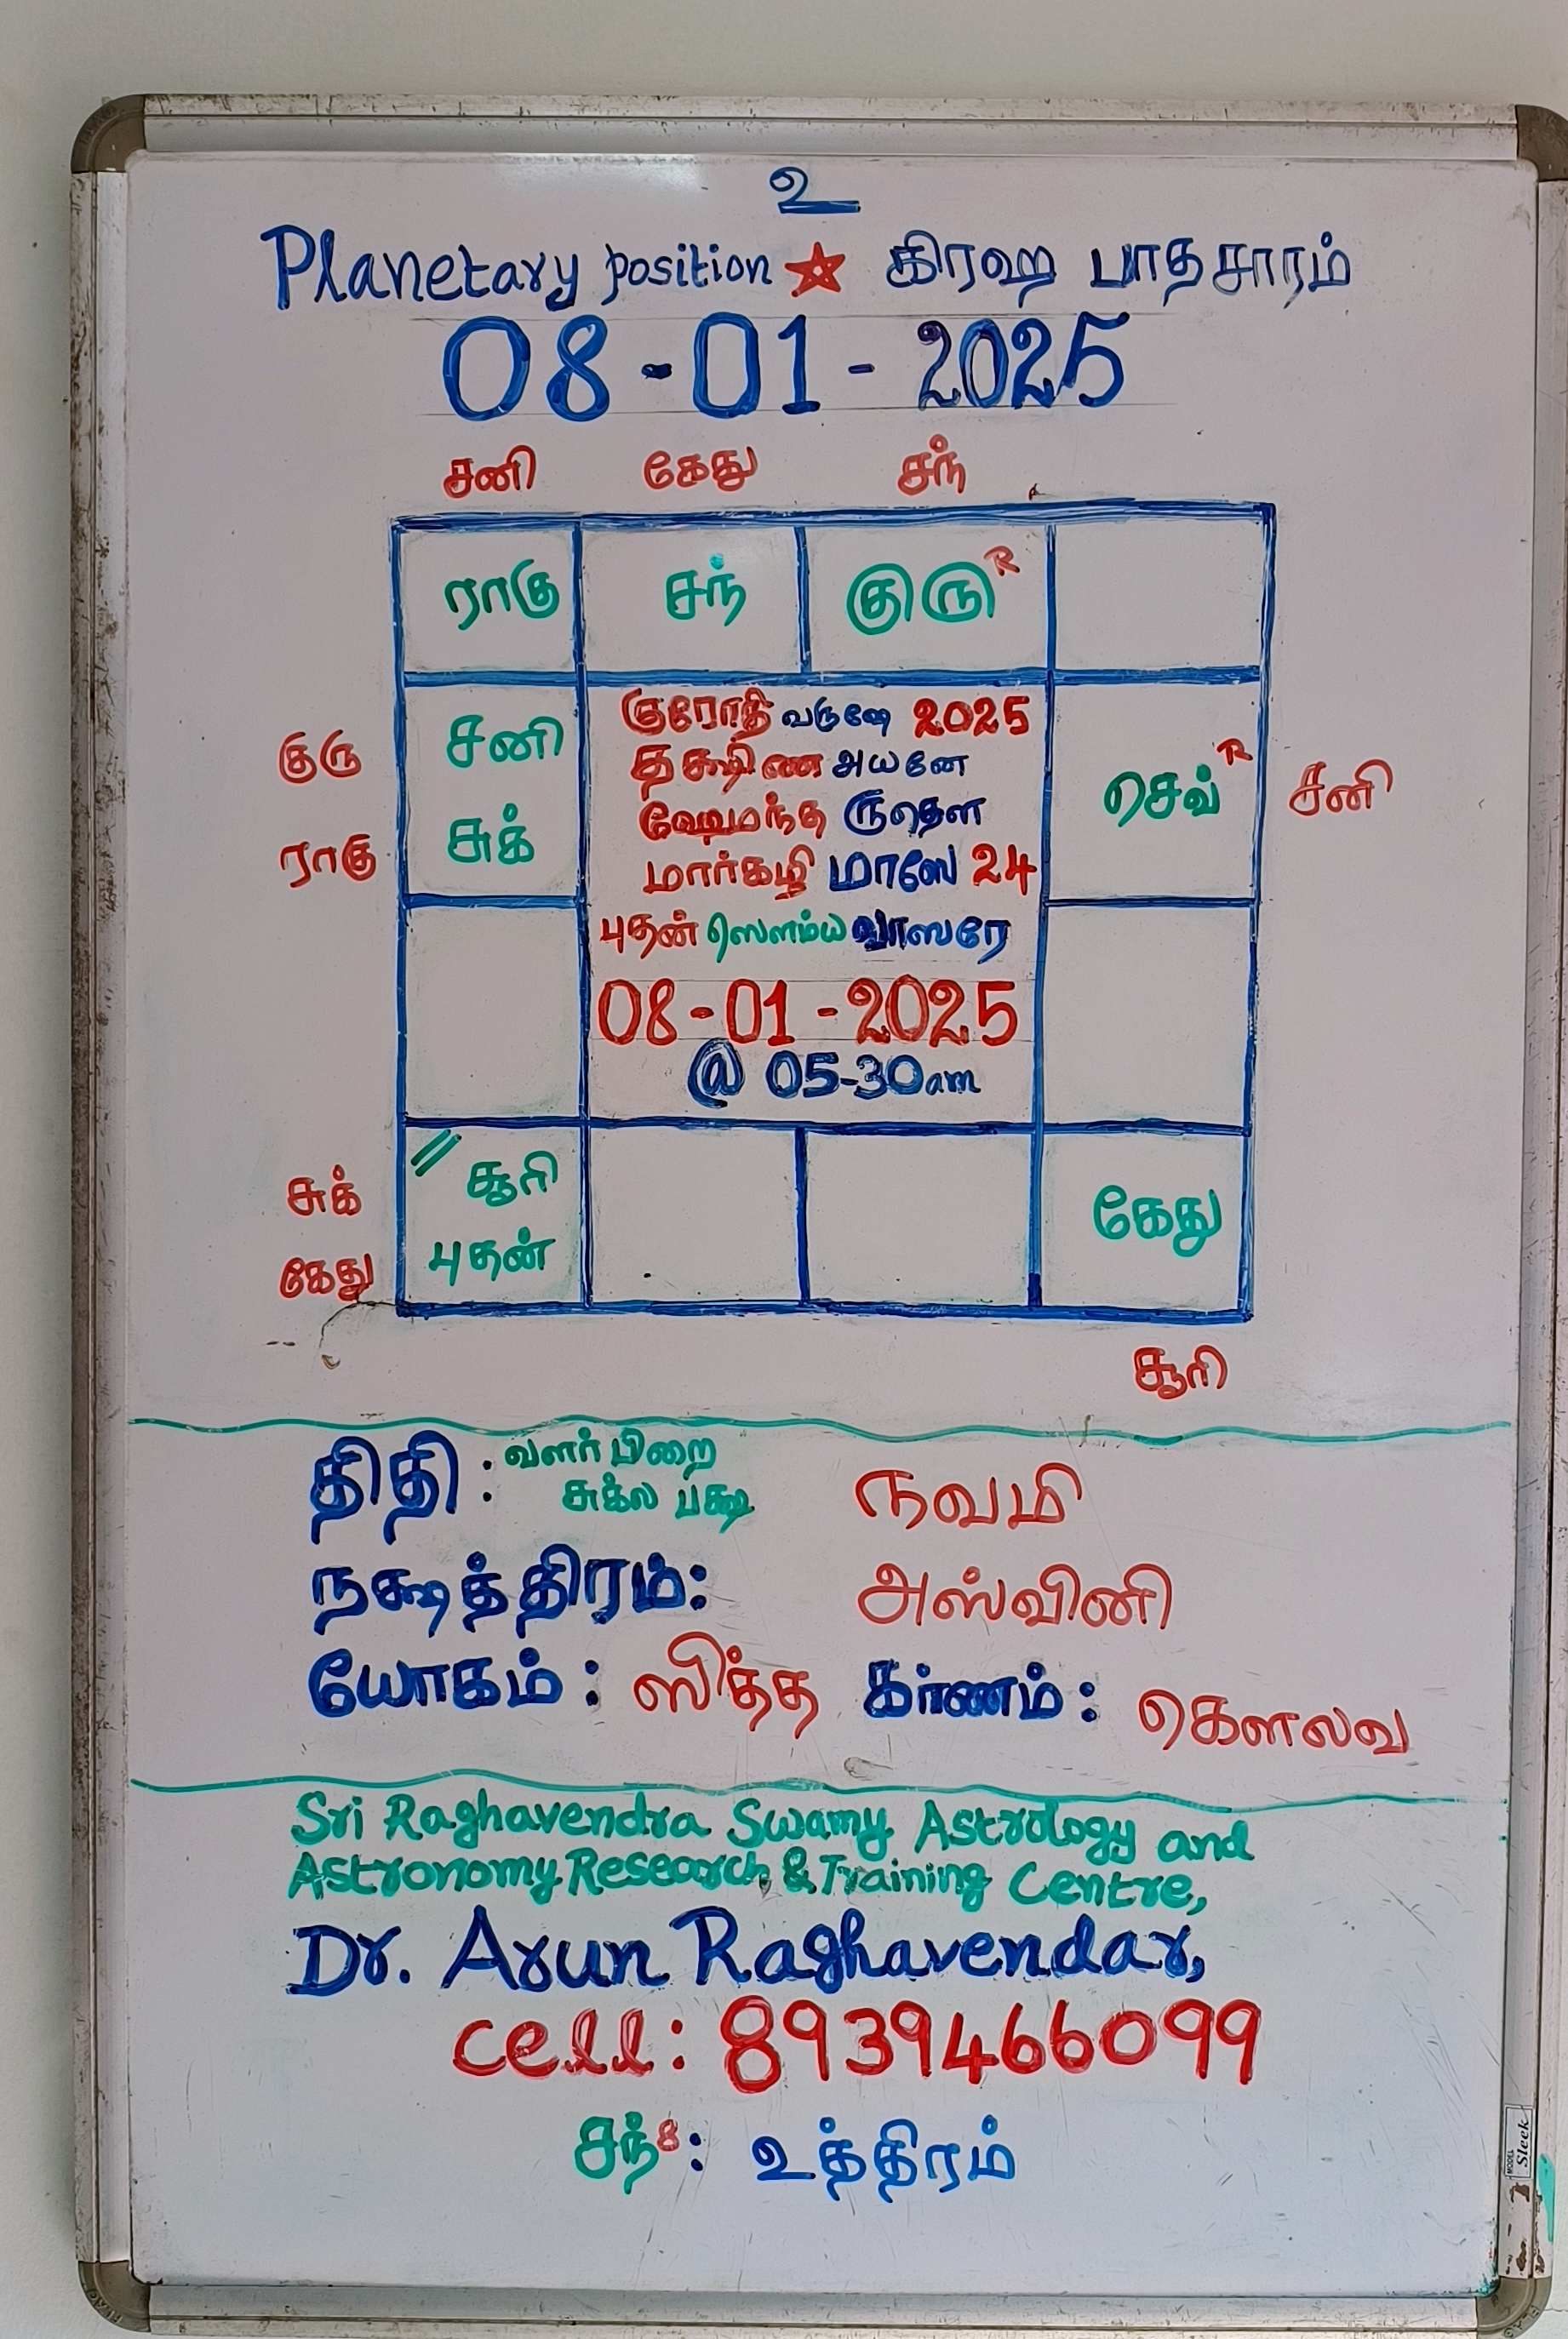 உ
Planetary position ★ கிரஹ பாதசாரம்
08-01-2025
சனி கேது சந்
ராகு சந் குரு R
குரு சனி
ராகு சுக்
செவ் R சனி
குரோதி வருஷே 2025
தக்ஷிண அயனே
ஹேமந்த ருதௌ
மார்கழி மாஸே 24
புதன் ஸௌம்ய வாஸரே
08-01-2025
@ 05-30am
சுக் சூரி
கேது புதன்
கேது
சூரி
திதி : வளர்பிறை
சுக்ல பக்ஷ நவமி
நக்ஷத்திரம்: அஸ்வினி
யோகம் : ஸித்த கர்ணம் : கௌலவ
Sri Raghavendra Swamy Astrology and
Astronomy Research & Training Centre,
Dr. Arun Raghavendar,
cell: 8939466099
சந்8: உத்திரம்
MODEL Sleek